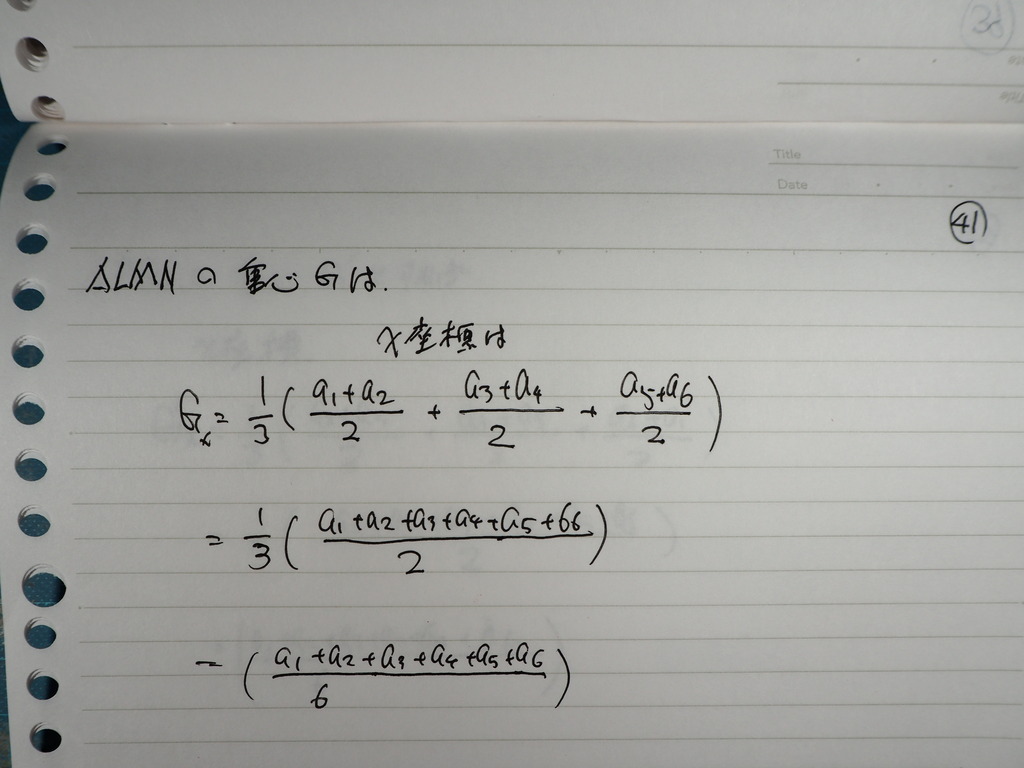 Title
Date
41
△LMNの重心Gは.
x座標は
Gx = 1/3 ( (a1+a2)/2 + (a3+a4)/2 + (a5+a6)/2 )
= 1/3 ( (a1+a2+a3+a4+a5+66)/2 )
= ( (a1+a2+a3+a4+a5+a6)/6 )